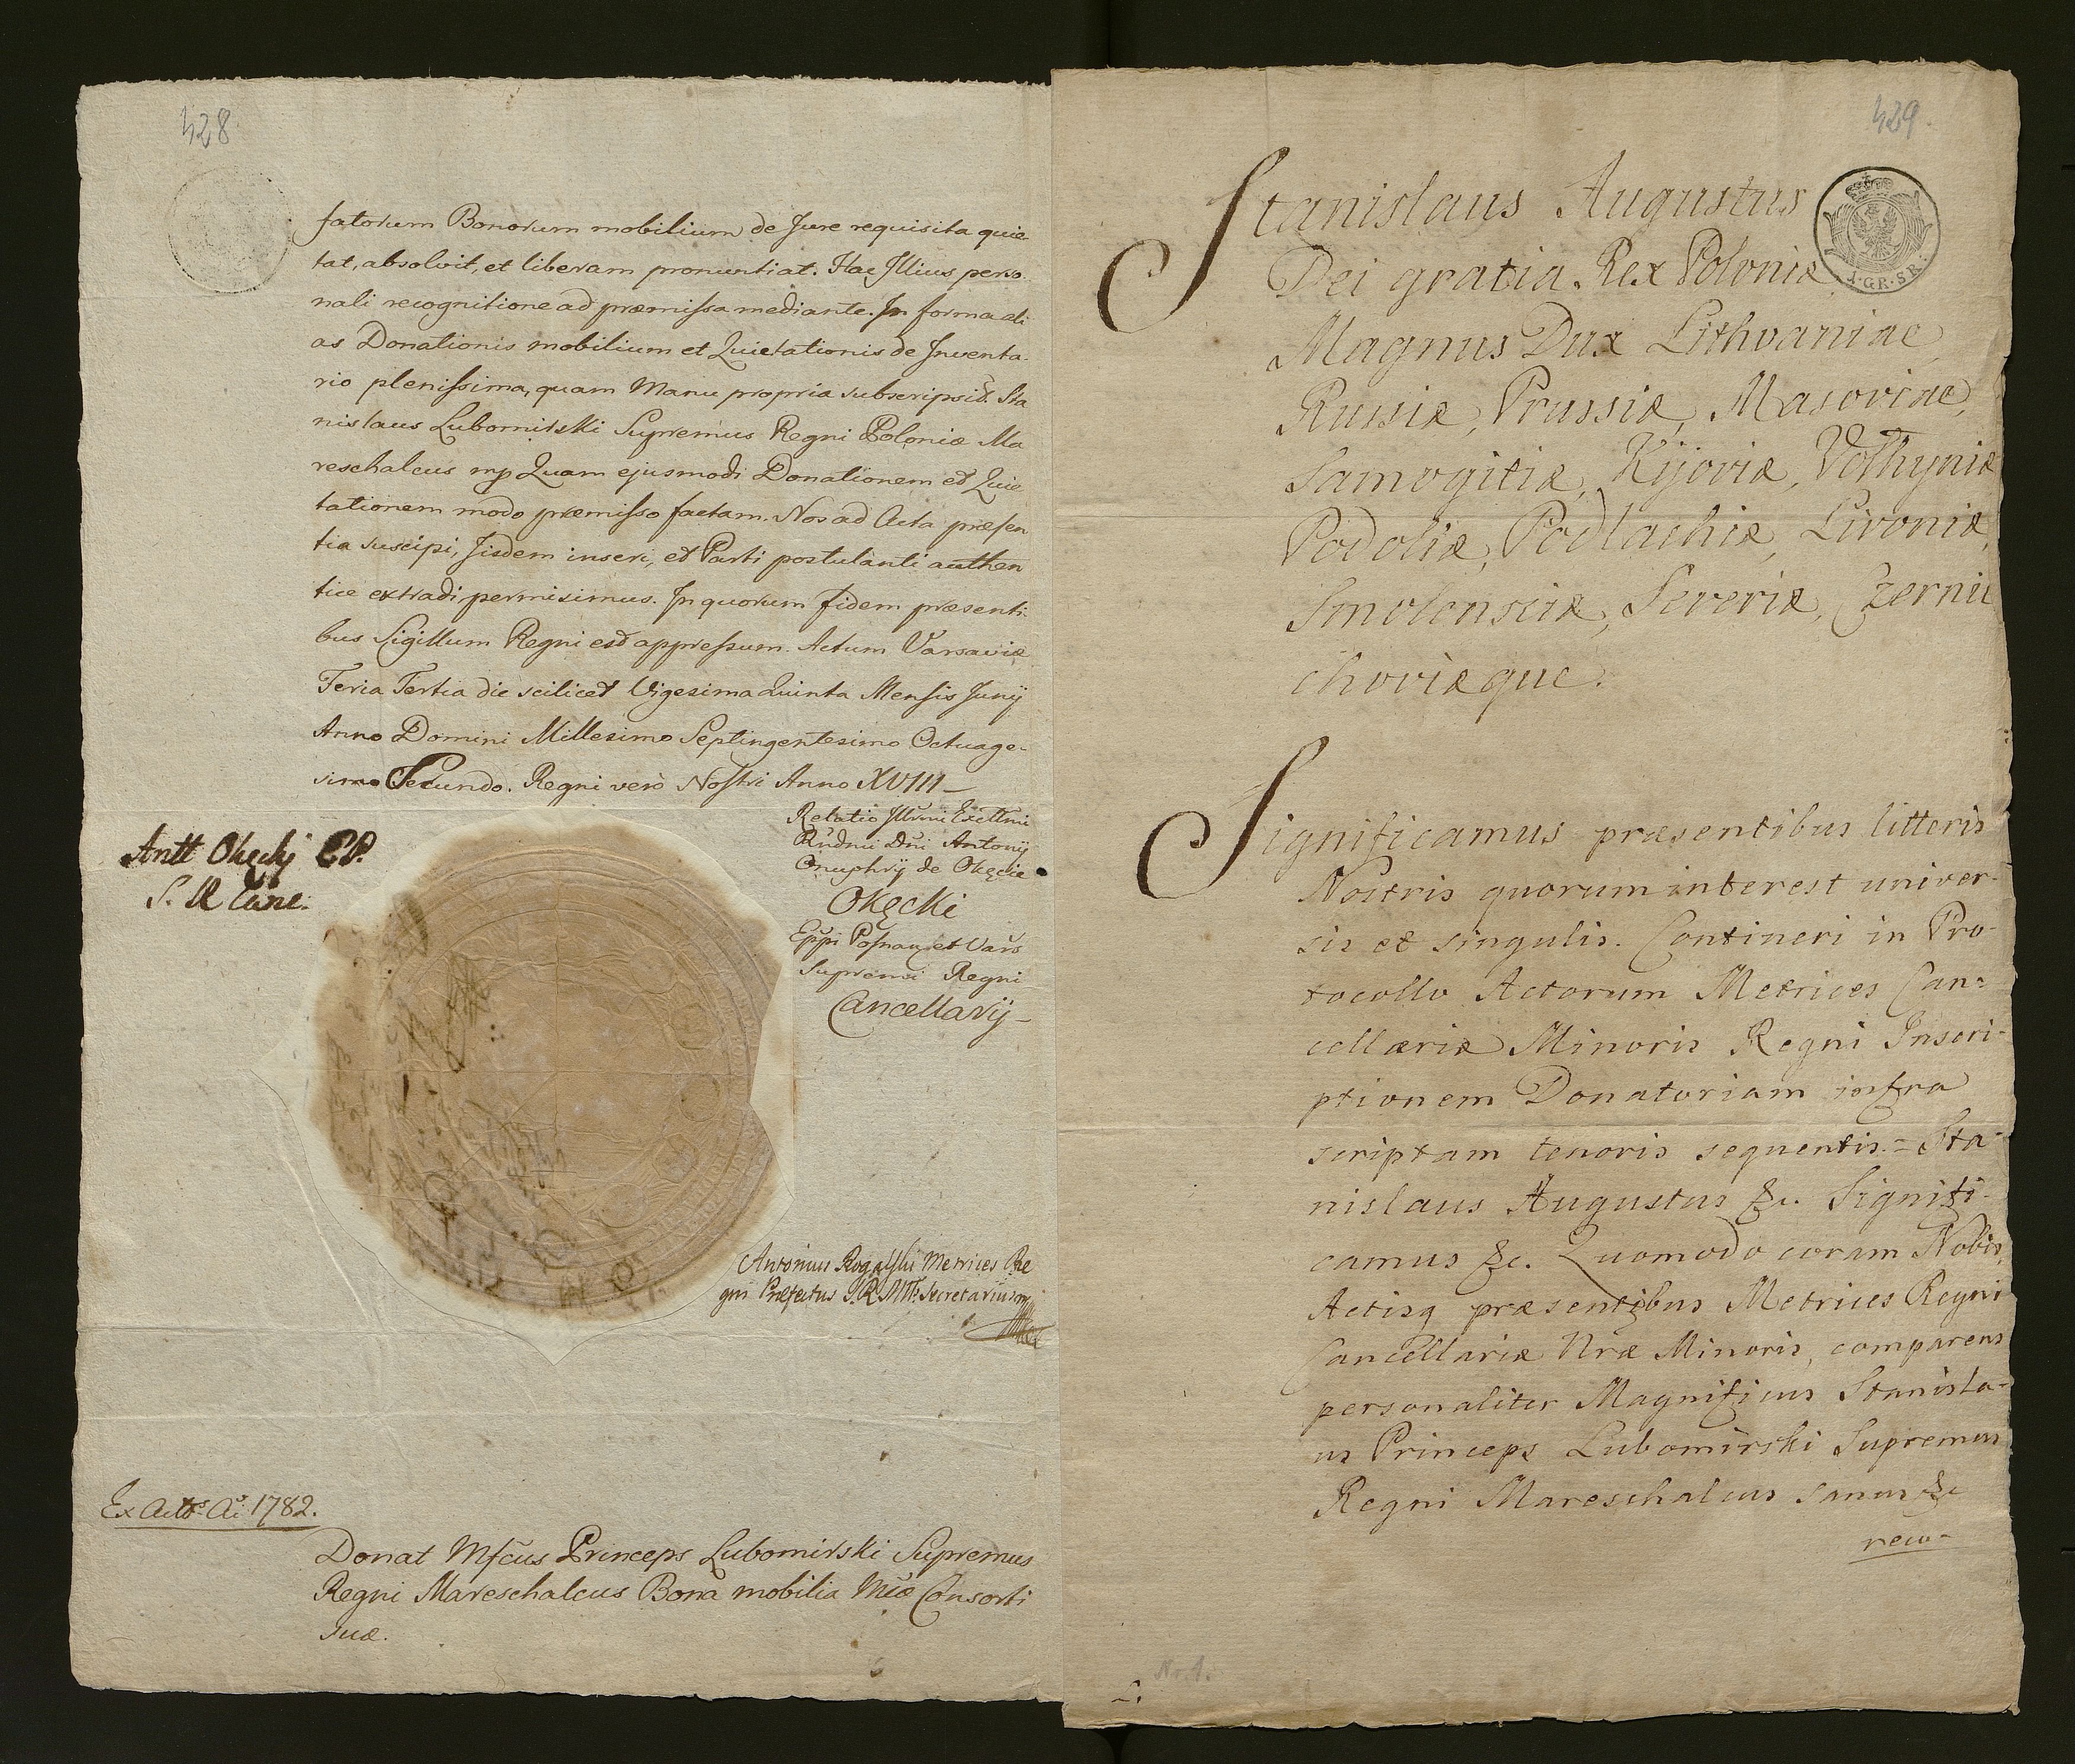 428
fatorum Bonorum mobilium de Jure requisita quie-
tat, absolvit, et liberam pronuntiat. Hac Illius perso-
nali recognitione ad præmissa mediante. In forma ali
as Donationis mobilium et Quietationis de Inventa-
rio plenissima, quam Manu propria subscripsit. Sta
nislaus Lubomirski Supremus Regni Poloniæ Ma
reschalcus mp Quam ejusmodi Donationem et Quie
tationem modo præmisso factam. Nos ad Acta præsen
tia suscipi, Iisdem inseri, et Parti postulanti authen
tice extradi permisimus. In quorum fidem præsenti-
bus Sigillum Regni est appressum. Actum Varsaviæ
Feria Tertia die scilicet Vigesima Quinta Mensis Junij
Anno Domini Millesimo Septingentesimo Octuage-
simo Secundo. Regni verò Nostri Anno XVIII
Relatio Illrmi Excllmi
Rudni Dni Antonij
Onuphrij de Okęcie
Okęcki
Eppi Posnan et Vars
Supremi Regni
Cancellarij
Antt Okęcki EP.
S. R Canc:
Antonius Rogalski Metrices Re
gni Præfectus S. R. Mtis Secretarius mp
Ex Actis Ai 1782.
Donat Mfcus Princeps Lubomirski Supremus
Regni Mareschalcus Bona mobilia Mcæ Consorti
suæ.
429.
Stanislaus Augustus
Dei gratia Rex Poloniæ
Magnus Dux Lithvaniae,
Russiæ, Prussiæ, Masoviae,
Samogitiæ, Kijoviæ, Volhyniæ
Podoliæ, Podlachiæ, Livoniæ,
Smolensciæ, Severiæ, Czernii
choviæque.
4.GR.SR.
Significamus præsentibus litteris
Nostris quorum interest univer-
sis et singulis. Contineri in Pro-
tocollo Actorum Metrices Can=
cellæriæ Minoris Regni Inscri-
ptionem Donatoriam infra
scriptam tenoris sequentis = Sta-
nislaus Augustus &c. Signifi-
camus &c. Quomodo coram Nobis,
Actisq præsentibus Metrices Regni
Cancellariæ Nræ Minoris, comparens
personaliter Magnificus Stanisla-
us Princeps Lubomirski Supremus
Regni Mareschalcus sanus &c
reco-
Nr. 1.